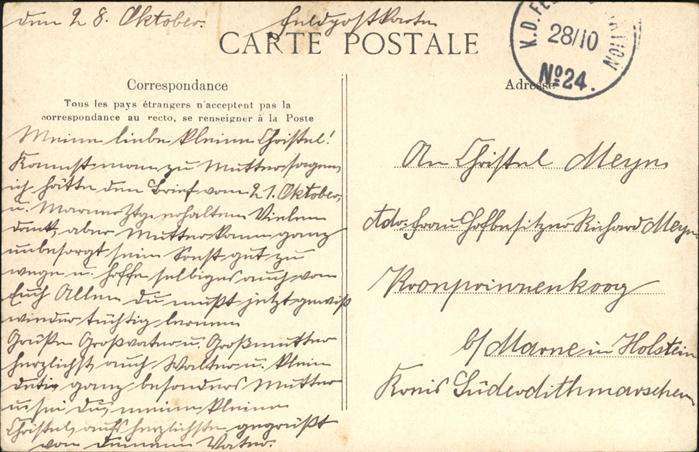 den 28. Oktober. Feldpostkarte
CARTE POSTALE
K. D. FE
28/10
No 24.
Correspondance
Tous les pays étrangers n'acceptent pas la
correspondance au recto, se renseigner à la Poste
Meine liebe kleine Christel!
Kannst man zu Mutter sagen,
ich hätte den Brief vom 21. Oktober,
u. erhalten. Vielen
Dank, aber Mutter kann ganz
unbesorgt sein. Sonst gut zu
wege u. hoffe selbiges auch von
Euch Allen. Du mußt jetzt gewiß
wieder tüchtig lernen
Grüßen Großvater u. Großmutter
herzlichst, auch Walter u. klein
ganz besonders Mutter
u. sei Du, meine kleine
Christel, aufs herzlichste gegrüßt
von deinem Vater.
Adresse
An Christel Meyn
Adr. Frau Hofbesitzer Richard Meyn
Kronprinzenkoog
b/ Marne in Holstein
Kreis Süderdithmarschen